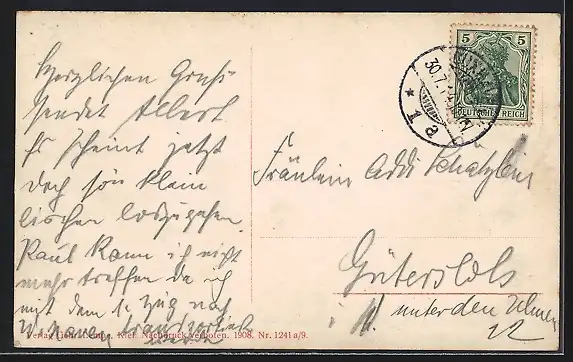 Herzlichen Gruß
sendet Albert
Es scheint jetzt
doch so'n klein
bischen loszugehen.
Paul kann ich nicht
mehr treffen da ich
mit dem 1. Zug nach
Verlag Kiel. Nachdruck verboten. 1908. Nr. 1241 a/9.
5 5
DEUTSCHES REICH
30.7.
* 1 a
Fräulein Addi
Gütersloh
i. W. unter den Ulmen
12